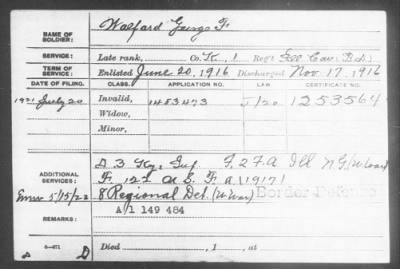 NAME OF SOLDIER: Walford George F.
SERVICE: Late rank, Co. K, 1 Reg't Cav.
TERM OF SERVICE: Enlisted June 20, 1916 Discharged Nov. 17, 1916
DATE OF FILING. CLASS. APPLICATION NO. LAW CERTIFICATE NO.
1921 July 20 Invalid, 1453473 J/20 1253564
Widow,
Minor,
ADDITIONAL SERVICES: D 3 Ky. Inf F. 2 F.A Ill N G
F. 127 F. A (1917)
5/15/23 8 Regional Det. (W War) Border Defence
REMARKS: A/1 149 484
D Died , 1 , at